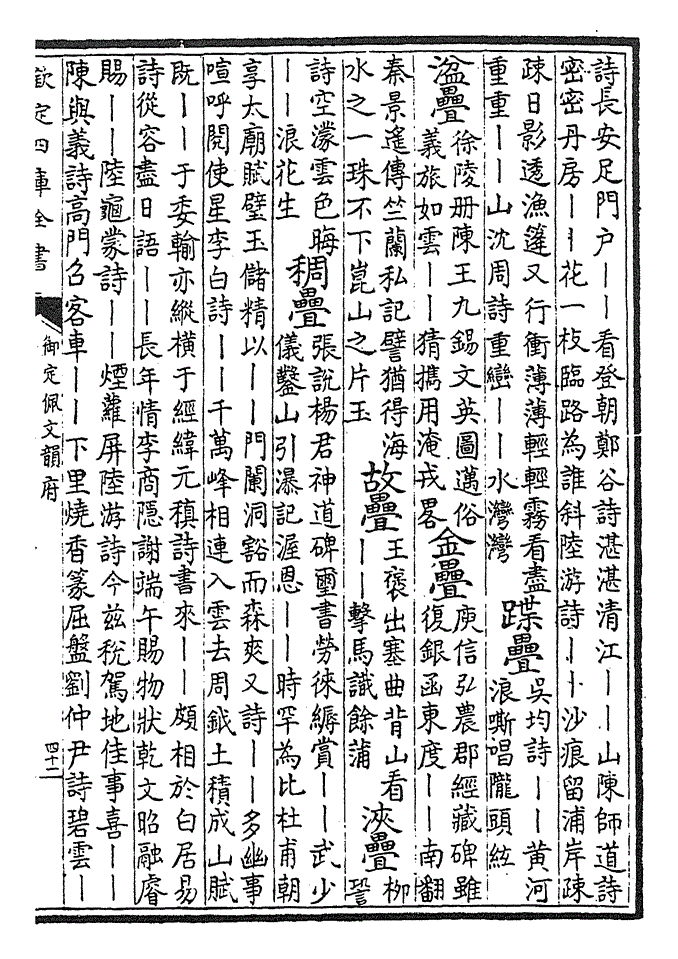 詩長安足門户――看登朝鄭谷詩湛湛清江――山陳師道詩
密密丹房――花一枝臨路為誰斜陸游詩――沙痕留浦岸疎
疎日影透漁篷又行衝薄薄輕輕霧看盡
重重――山沈周詩重巒――水灣灣
蹀疊
吳均詩――黄河
浪嘶唱隴頭絃
湓疊
徐陵册陳王九錫文英圖邁俗
義旅如雲――猜攜用淹戎畧
金疊
庾信弘農郡經藏碑雖
復銀函東度――南翻
秦景遙傳竺蘭私記譬猶得海
水之一珠不下崑山之片玉
故疊
王褒出塞曲背山看
――擊馬識餘蒲
浹疊
柳
䛒
詩空濛雲色晦
――浪花生
稠疊
張說楊君神道碑璽書勞徠縟賞――武少
儀鑿山引瀑記渥恩――時罕為比杜甫朝
享太廟賦璧玉儲精以――門闌洞豁而森爽又詩――多幽事
喧呼閱使星李白詩――千萬峰相連入雲去周鉞土積成山賦
既――于委輸亦縱横于經緯元稹詩書來――頗相於白居易
詩從容盡日語――長年情李商隱謝端午賜物狀乾文昭融睿
賜――陸龜蒙詩――煙蘿屏陸游詩今兹稅駕地佳事喜――
陳與義詩高門召客車――下里燒香篆屈盤劉仲尹詩碧雲――
欽定四庫全書
御定佩文韻府
四十二